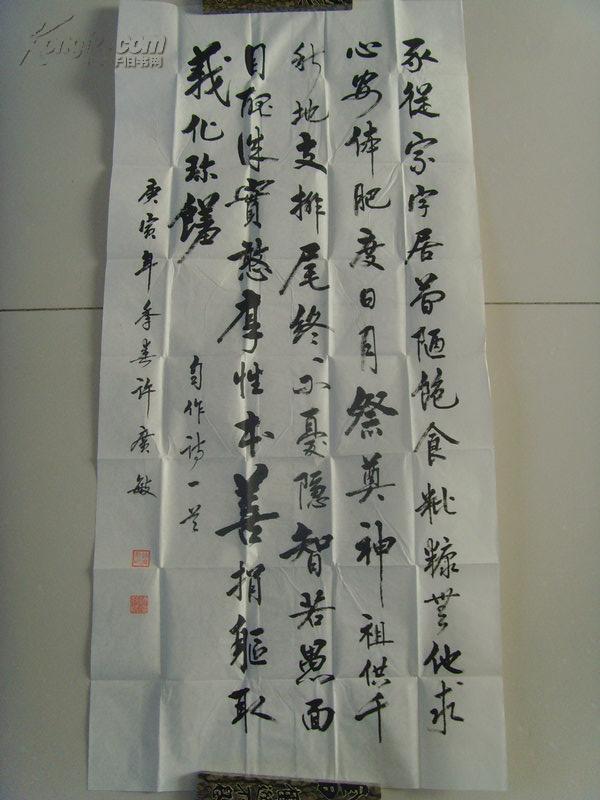 豕從家字居簡陋飽食粃糠無他求
心安体肥度日月祭奠神祖供千
秋地支排尾終不憂隱智若愚面
目醜誠實憨厚性本善捐軀取
義化珍饈
自作詩一首
庚寅年季春许廣敏
kongfz.com
孔夫子旧书网